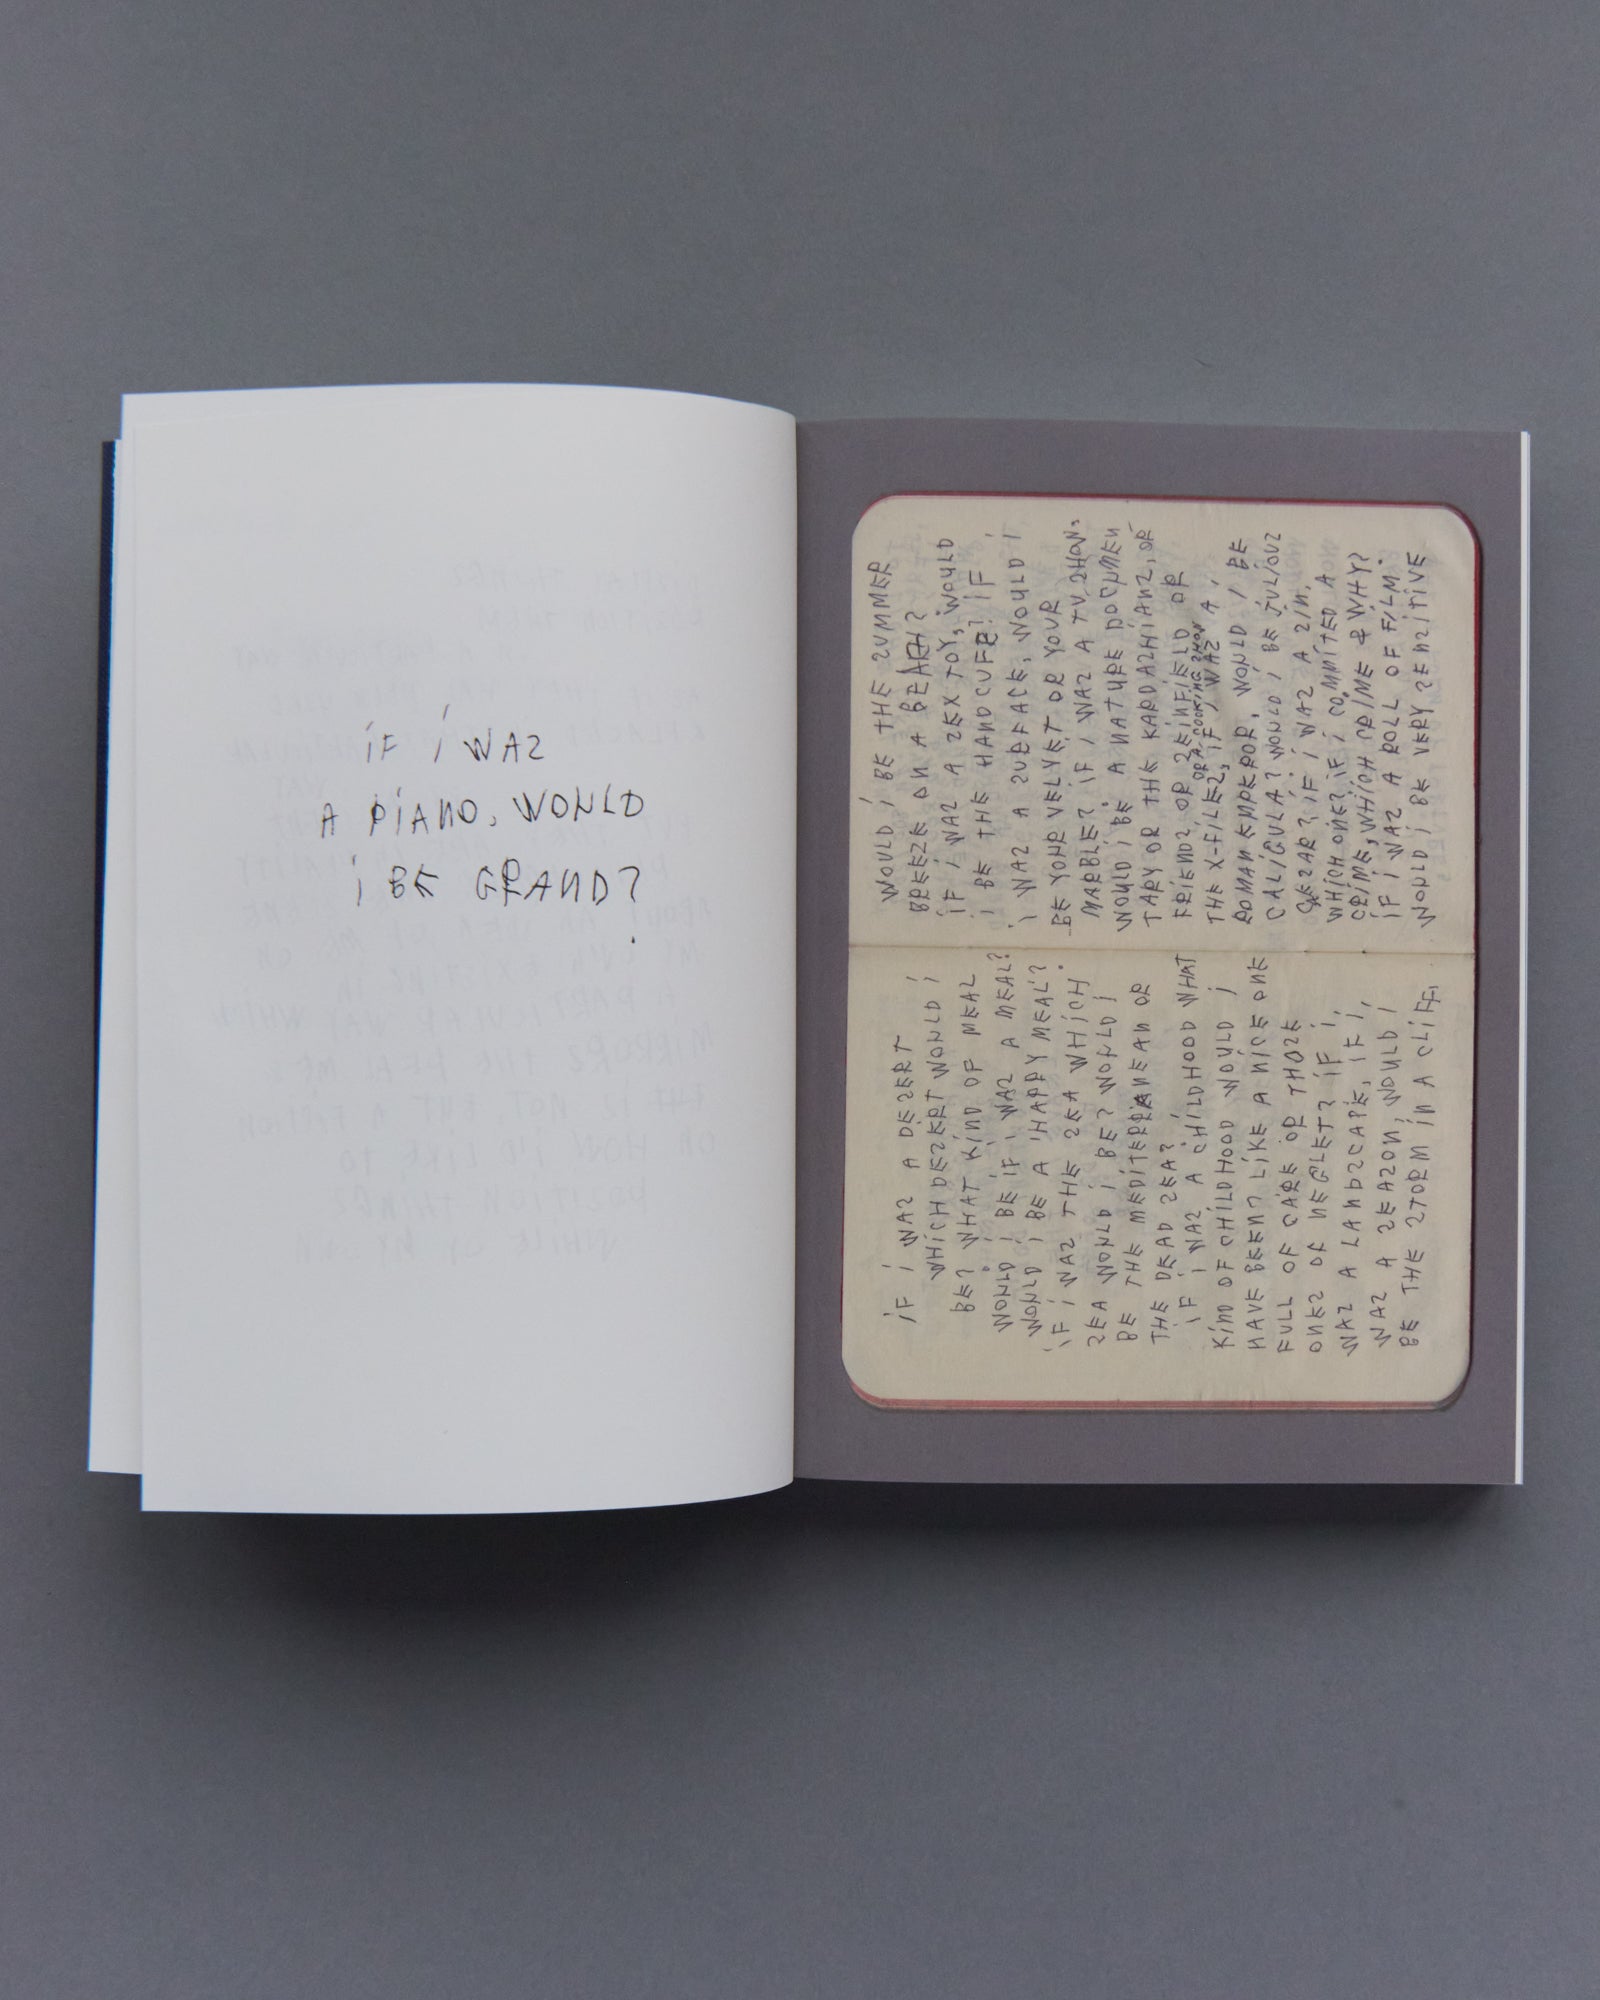 IF I WAS
A PIANO, WOULD
I BE GRAND?
IF I WAS A DESERT
WHICH DESERT WOULD I
BE? WHAT KIND OF MEAL
WOULD I BE IF I WAS A MEAL?
WOULD I BE A HAPPY MEAL?
IF I WAS THE SEA WHICH
SEA WOULD I BE? WOULD I
BE THE MEDITERRANEAN OR
THE DEAD SEA?
IF I WAS A CHILDHOOD WHAT
KIND OF CHILDHOOD WOULD I
HAVE BEEN? LIKE A NICE ONE
FULL OF CARE OR THOSE
ONES OF NEGLET? IF I
WAS A LANDSCAPE, IF I
WAS A SEASON, WOULD I
BE THE STORM IN A CLIFF,
WOULD I BE THE SUMMER
BREEZE ON A BEACH?
IF I WAS A SEX TOY, WOULD
I BE THE HANDCUFS? IF
I WAS A SURFACE, WOULD I
BE YOUR VELVET OR YOUR
MARBLE? IF I WAS A TV SHOW
WOULD I BE A NATURE DOCUMEN
TARY OR THE KARDASHIANS, OR
FRIENDS OR SEINFIELD OR
OR A COOKING SHOW
THE X-FILES, IF I WAS A
ROMAN EMPEROR, WOULD I BE
CALIGULA? WOULD I BE JULIOUS
CESAR? IF I WAS A SIN,
WHICH ONE? IF I COMMITED A
CRIME, WHICH CRIME & WHY?
IF I WAS A ROLL OF FILM
WOULD I BE VERY SENSITIVE